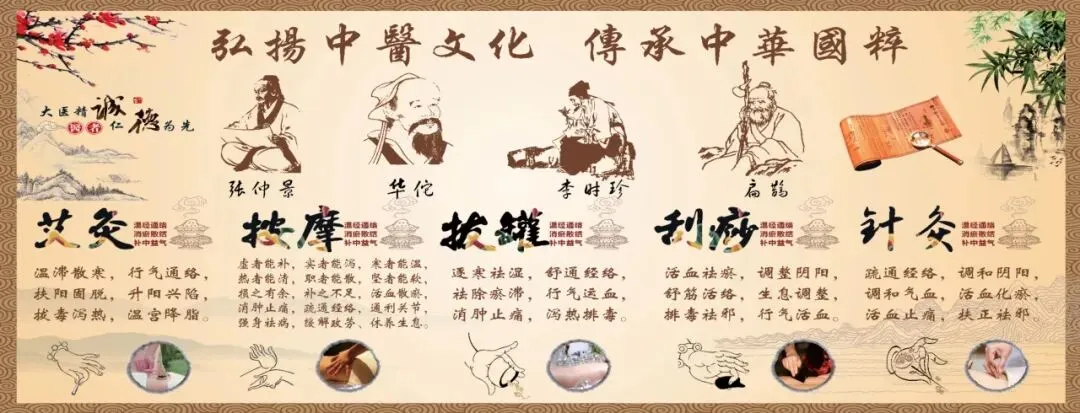 弘揚中醫文化 傳承中華國粹
大医精誠
醫者仁德为先
张仲景
华佗
李时珍
扁鹊
艾灸
温经通络
消瘀散结
补中益气
温滞散寒，行气通络，
扶阳固脱，升阳兴陷，
拔毒泻热，温宫降脂。
按摩
温经通络
消瘀散结
补中益气
虚者能补，实者能泻，寒者能温，
热者能清，职者能散，坚者能软，
损之有余，补之不足，活血散瘀，
消肿止痛，疏通经络，通利关节，
强身祛病，缓解疲劳、休养生息。
拔罐
温经通络
消瘀散结
补中益气
逐寒祛湿，舒通经络，
祛除瘀滞，行气运血，
消肿止痛，泻热排毒。
刮痧
温经通络
消瘀散结
补中益气
活血祛瘀，调整阴阳，
舒筋活络，生息调整，
排毒祛邪，行气活血。
针灸
温经通络
消瘀散结
补中益气
疏通经络，调和阴阳，
调和气血，活血化瘀，
活血止痛，扶正祛邪